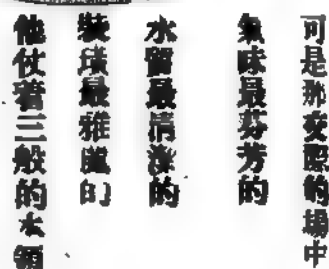 可是那交際的場中
氣味最芬芳的
水最的
裝璜最雅的
他仗着三般的本領